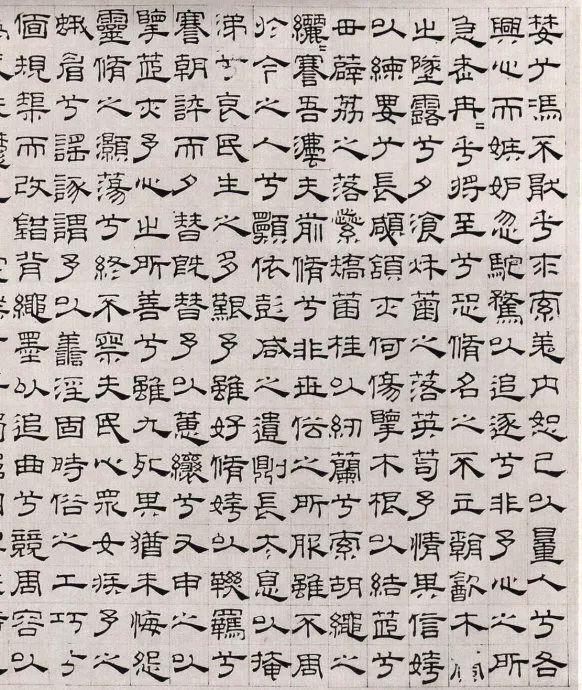 婪兮馮不猒乎求索羌内恕己以量人兮各
興心而嫉妒忽馳騖以追逐兮非予心之所
急老冉〻乎將至兮恐脩名之不立朝歠木
之墜露兮夕湌秋菊之落英苟予情其信姱
以練要兮長顑頷亦何傷擥木根以結茝兮
毌薜荔之落蘂矯菌桂以紉蘭兮索胡繩之
纚〻謇吾灋夫前脩兮非世俗之所服雖不周
於今之人兮願依彭咸之遺則長太息以掩
涕兮哀民生之多艱予雖好脩姱以鞿羈兮
謇朝誶而夕替既替予以蕙纕兮又申之以
擥茝亦予心之所善兮雖九死其猶未悔怨
靈脩之灝蕩兮終不察夫民心衆女疾予之
蛾眉兮謠諑謂予以譱淫固時俗之工巧兮
偭規榘而改錯背繩墨以追曲兮競周容以